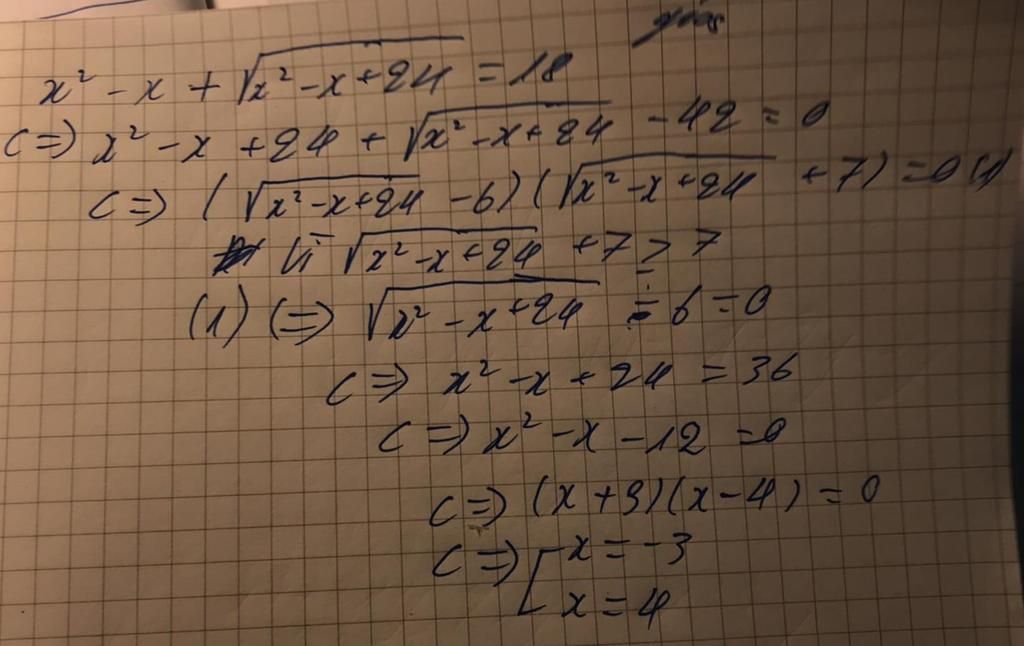 x² - x + √(x² - x + 24) = 18
<=> x² - x + 24 + √(x² - x + 24) - 42 = 0
<=> (√(x² - x + 24) - 6)(√(x² - x + 24) + 7) = 0 (1)
Vì √(x² - x + 24) + 7 ≥ 7
(1) <=> √(x² - x + 24) - 6 = 0
<=> x² - x + 24 = 36
<=> x² - x - 12 = 0
<=> (x + 3)(x - 4) = 0
<=> [x = -3
x = 4